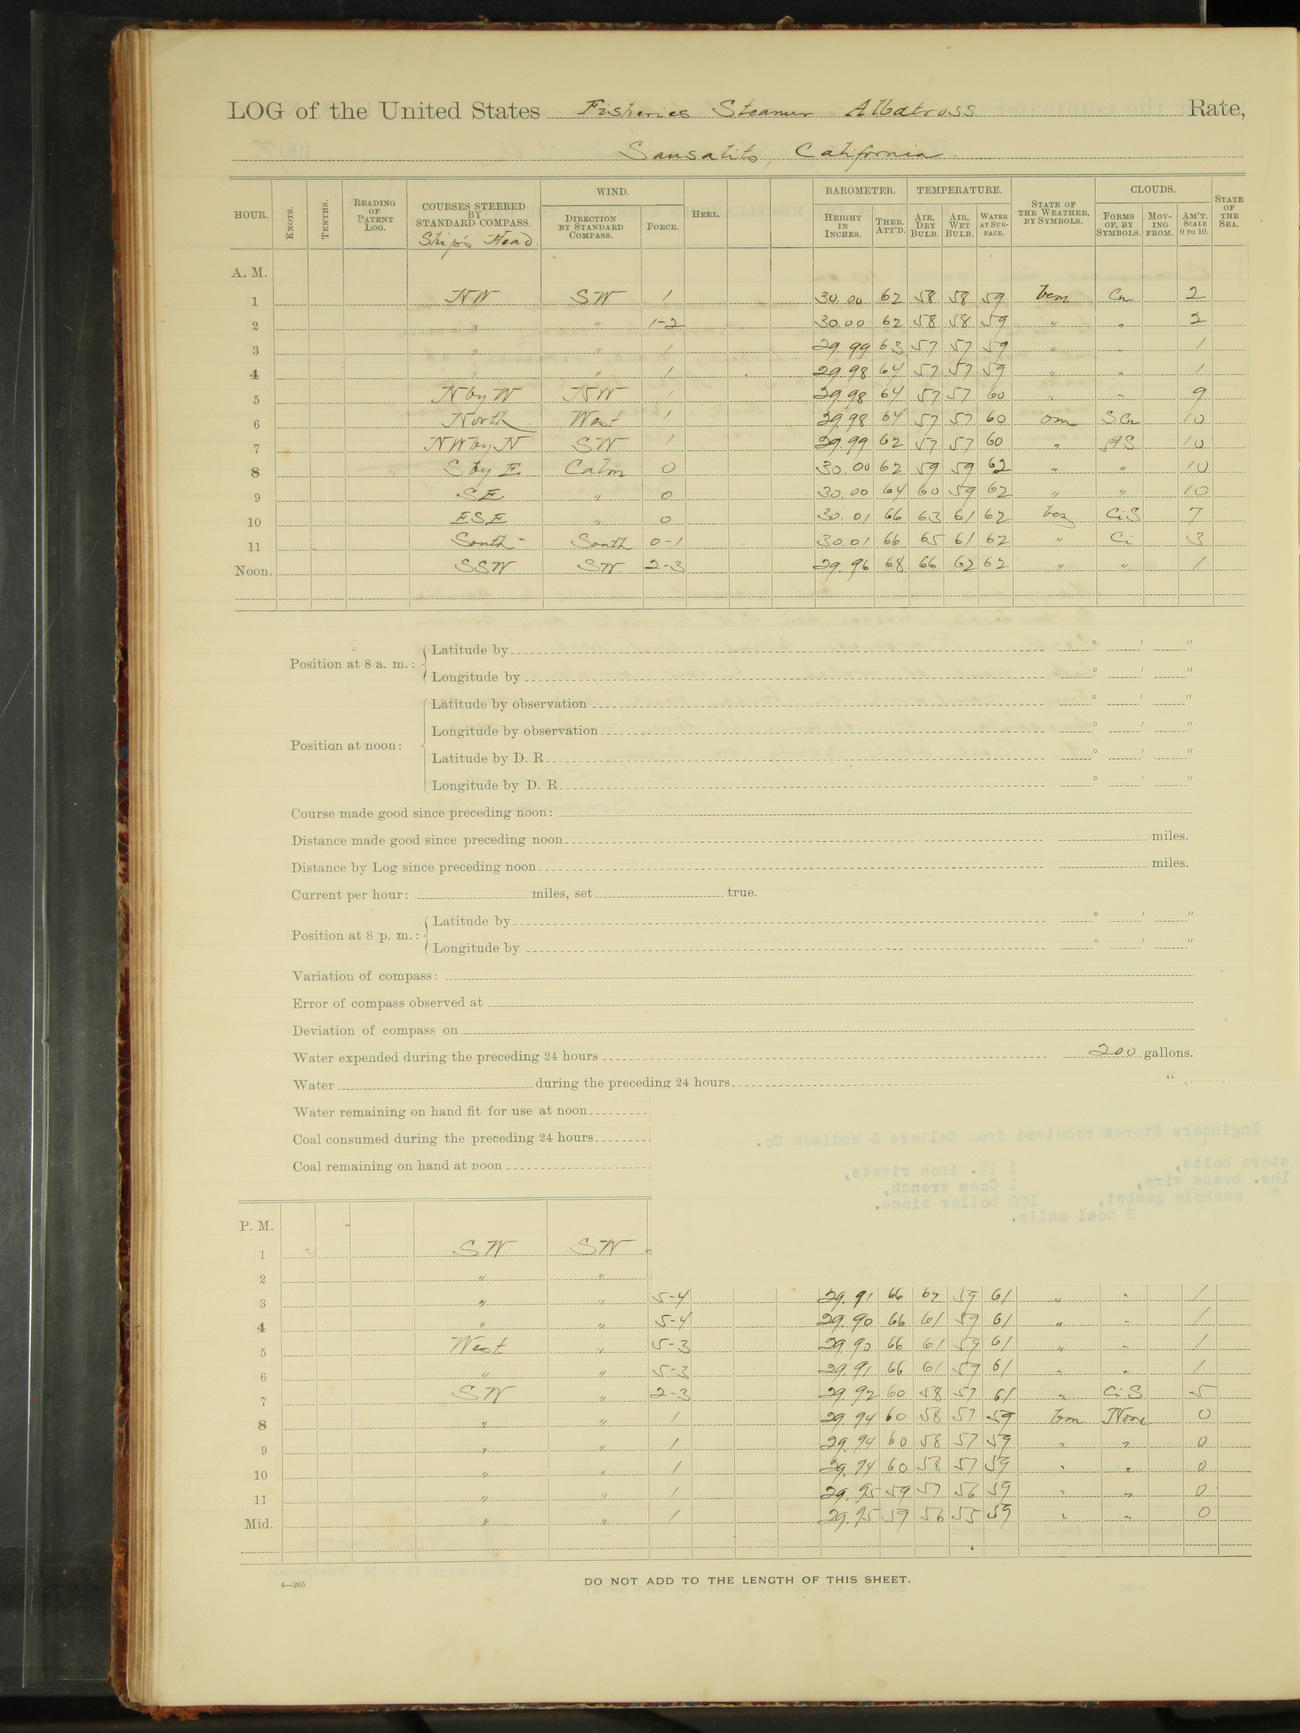 LOG of the United States Fisheries Steamer Albatross Rate,
Sausalito, California.
HOUR. KNOTS. TENTHS. READING OF PATENT LOG. COURSES STEERED BY STANDARD COMPASS. Ship's Head WIND. DIRECTION BY STANDARD COMPASS. FORCE. HEEL. BAROMETER. HEIGHT IN INCHES. THER. ATT'D. TEMPERATURE. AIR, DRY BULB. AIR, WET BULB. WATER AT SURFACE. STATE OF THE WEATHER, BY SYMBOLS. CLOUDS. FORMS OF, BY SYMBOLS. MOVING FROM. AM'T. SCALE 0 TO 10. STATE OF THE SEA.
A. M.
1 NW SW 1 30.00 62 58 58 59 bcm Cu 2
2 " " 1-2 30.00 62 58 58 59 " " 2
3 " " 1 29.99 63 57 57 59 " " 1
4 " " 1 29.98 64 57 57 59 " " 1
5 N by W NW 1 29.98 64 57 57 60 " " 9
6 North West 1 29.98 64 57 57 60 om SCu 10
7 NW by N SW 1 29.99 62 57 57 60 " 10
8 S by E Calm 0 30.00 62 59 59 62 " " 10
9 SE " 0 30.00 64 60 59 62 " " 10
10 ESE " 0 30.01 66 63 61 62 bcz CiS 7
11 South South 0-1 30.01 66 65 61 62 " Ci 3
Noon. SSW SW 2-3 29.96 68 66 62 62 " " 1
Position at 8 a. m.: Latitude by ° ′ ″
Longitude by ° ′ ″
Position at noon: Latitude by observation ° ′ ″
Longitude by observation ° ′ ″
Latitude by D. R. ° ′ ″
Longitude by D. R. ° ′ ″
Course made good since preceding noon:
Distance made good since preceding noon miles.
Distance by Log since preceding noon miles.
Current per hour: miles, set true.
Position at 8 p. m.: Latitude by ° ′ ″
Longitude by ° ′ ″
Variation of compass:
Error of compass observed at
Deviation of compass on
Water expended during the preceding 24 hours 200 gallons.
Water during the preceding 24 hours "
Water remaining on hand fit for use at noon
Coal consumed during the preceding 24 hours
Coal remaining on hand at noon
Engineers Stores received from Sellers & Madison Co.
stove bolts, 1 lb. iron rivets,
lbs. brass wire, 1 Coes wrench,
" manhole gasket, 100 boiler zincs.
2 coal malls.
P. M.
1 SW SW
2 " "
3 " " 5-4 29.91 66 62 59 61 " " 1
4 " " 5-4 29.90 66 61 59 61 " " 1
5 West " 5-3 29.90 66 61 59 61 " " 1
6 " " 5-3 29.91 66 61 59 61 " " 1
7 SW " 2-3 29.92 60 58 57 61 " CiS 5
8 " " 1 29.94 60 58 57 59 bm None 0
9 " " 1 29.94 60 58 57 59 " " 0
10 " " 1 29.94 60 58 57 59 " " 0
11 " " 1 29.95 59 57 56 59 " " 0
Mid. " " 1 29.95 59 56 55 59 " " 0
4—265
DO NOT ADD TO THE LENGTH OF THIS SHEET.